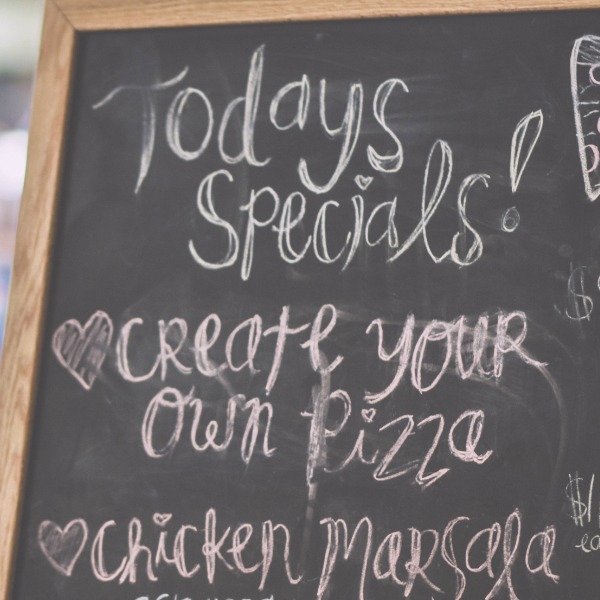 Todays
Specials!
Create your
Own Pizza
Chicken Marsala